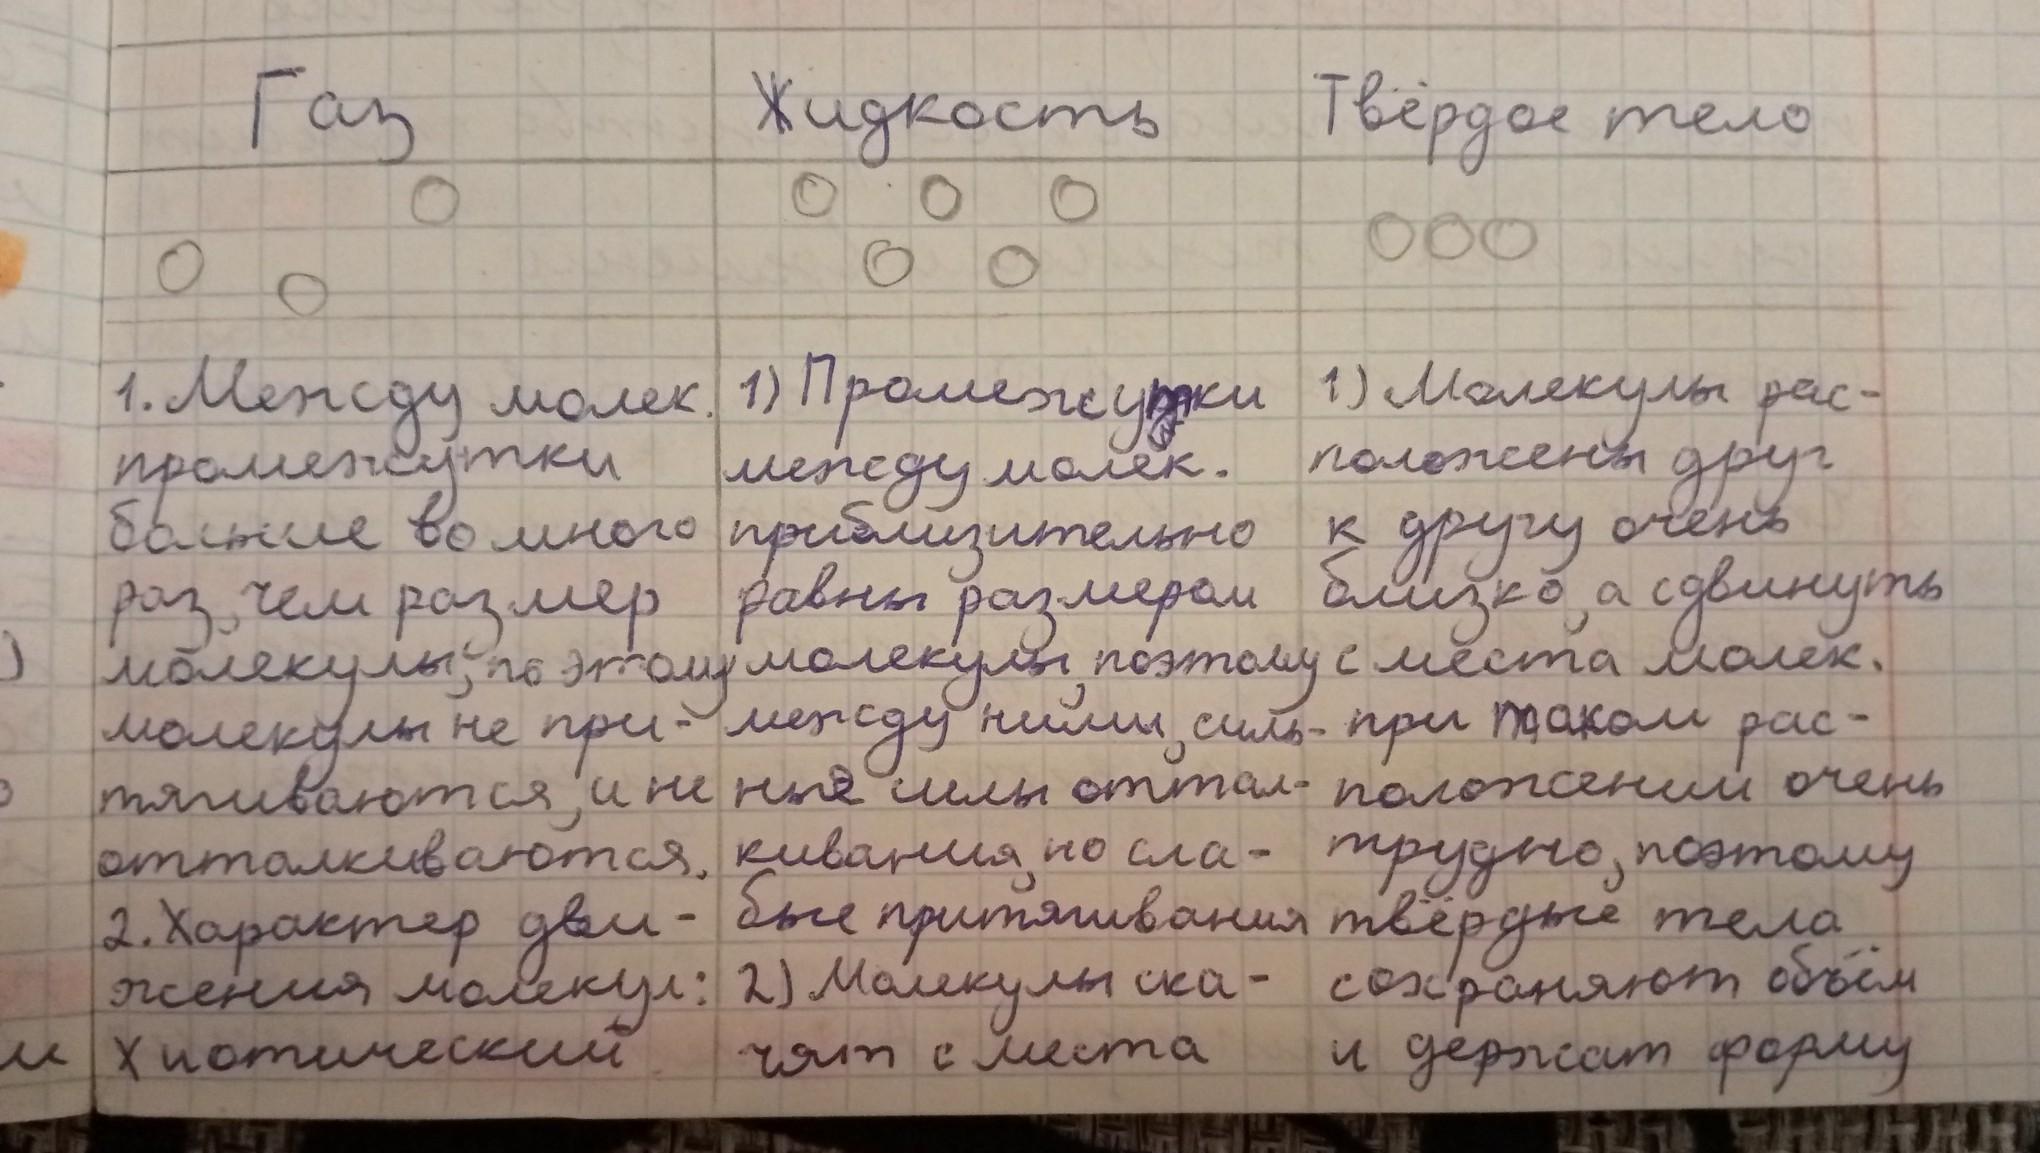 Газ
Жидкость
Твёрдое тело
1. Между молек.
промежутки
больше во много
раз, чем размер
молекулы, поэтому
молекулы не при-
тягиваются, и не
отталкиваются.
2. Характер дви-
жения молекул:
Хиотический
1) Промежутки
между молек.
приблизительно
равны размерам
молекулы, поэтому
между ними, силь-
ные силы оттал-
кивания, но сла-
бые притягивания
2) Молекулы ска-
чят с места
1) Молекулы рас-
положены друг
к другу очень
близко, а сдвинуть
с места молек.
при таком рас-
положении очень
трудно, поэтому
твёрдые тела
сохраняют объём
и держат форму